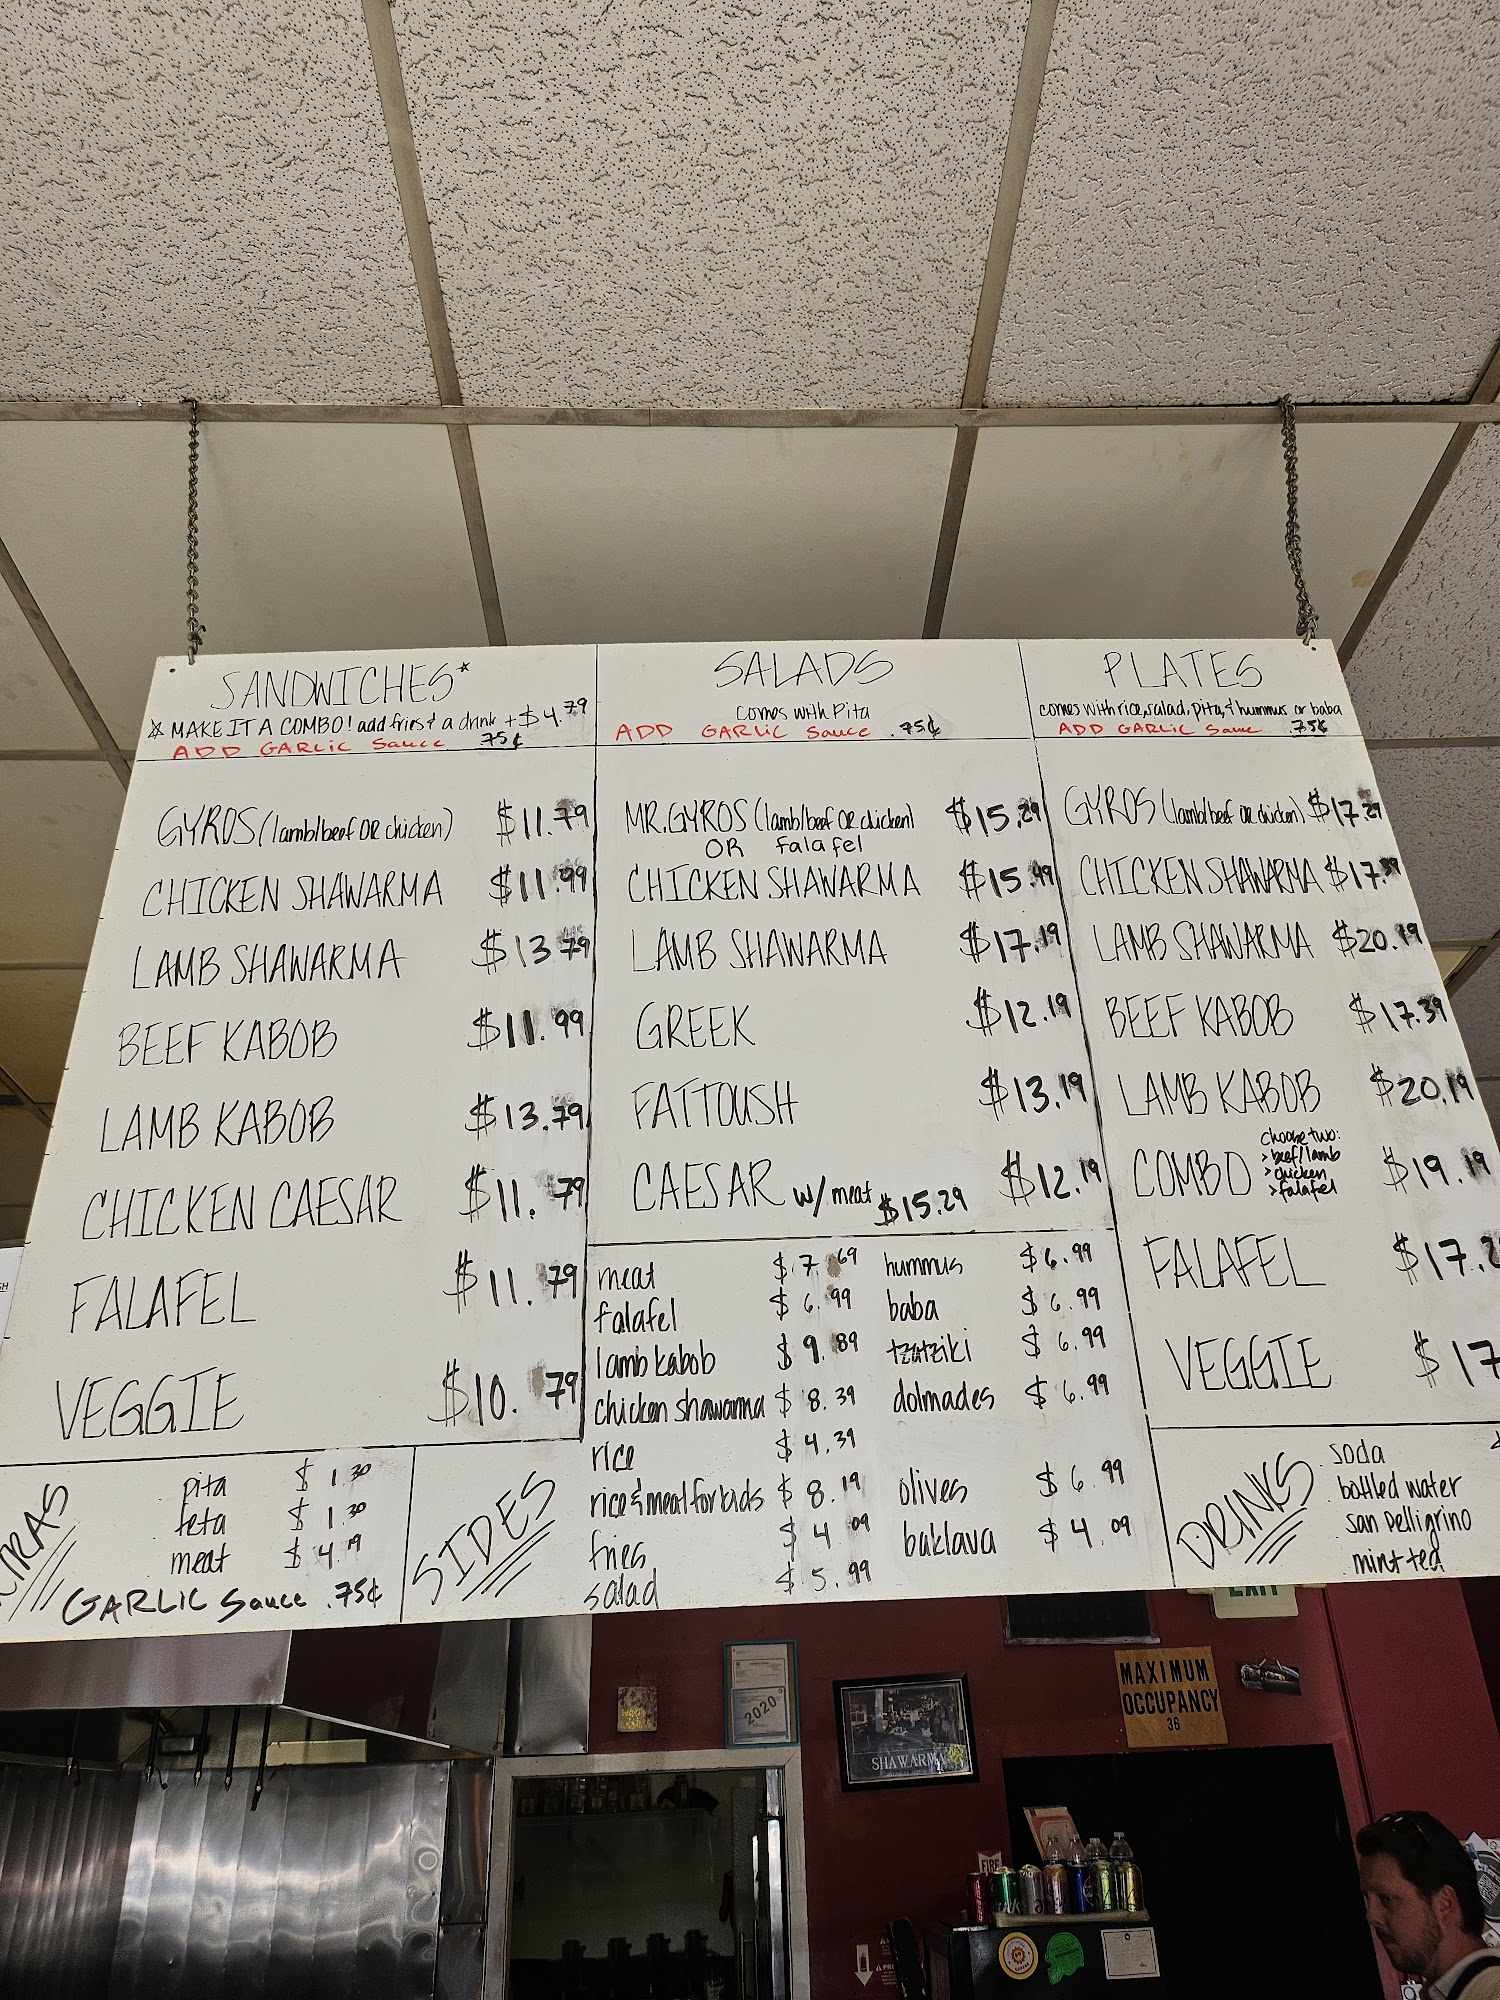 SANDWICHES*
* MAKE IT A COMBO! add fries & a drink + $4.79
ADD GARLIC Sauce .75¢
GYROS (lamb/beef OR chicken) $11.79
CHICKEN SHAWARMA $11.99
LAMB SHAWARMA $13.79
BEEF KABOB $11.99
LAMB KABOB $13.79
CHICKEN CAESAR $11.79
FALAFEL $11.79
VEGGIE $10.79
SALADS
comes with Pita
ADD GARLIC Sauce .75¢
MR. GYROS (lamb/beef OR chicken) $15.29
OR falafel
CHICKEN SHAWARMA $15.99
LAMB SHAWARMA $17.19
GREEK $12.19
FATTOUSH $13.19
CAESAR $12.19
w/ meat $15.29
PLATES
comes with rice, salad, pita, & hummus or baba
ADD GARLIC Sauce .75¢
GYROS (lamb/beef OR chicken) $17.29
CHICKEN SHAWARMA $17.39
LAMB SHAWARMA $20.19
BEEF KABOB $17.39
LAMB KABOB $20.19
COMBO $19.19
choose two:
> beef/lamb
> chicken
> falafel
FALAFEL $17.2
VEGGIE $17
pita $1.30
feta $1.30
meat $4.19
GARLIC Sauce .75¢
SIDES
meat $7.69
falafel $6.99
lamb kabob $9.89
chicken shawarma $8.39
rice $4.39
rice & meat for kids $8.19
fries $4.09
salad $5.99
hummus $6.99
baba $6.99
tzatziki $6.99
dolmades $6.99
olives $6.99
baklava $4.09
DRINKS
soda
bottled water
san pelligrino
mint tea
EXIT
2020
SHAWARMA
MAXIMUM
OCCUPANCY
36
FIRE